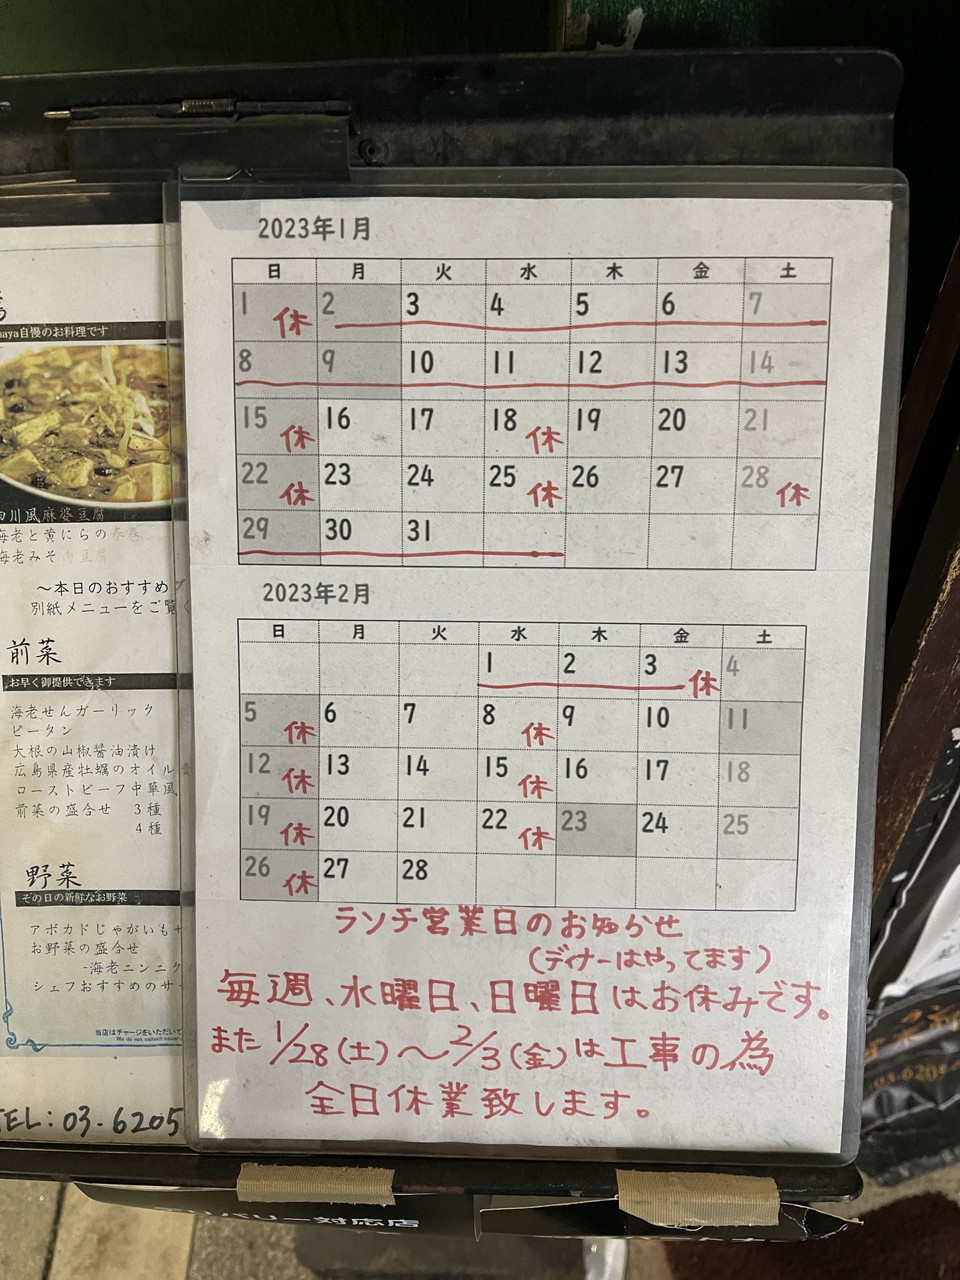 aya自慢のお料理です
四川風麻婆豆腐
海老と黄にらの春巻
海老みそ肉豆腐
～本日のおすすめ
別紙メニューをご覧く
前菜
お早く御提供できます
海老せんガーリック
ピータン
大根の山椒醤油漬け
広島県産牡蠣のオイル
ローストビーフ中華風
前菜の盛合せ 3種
4種
野菜
その日の新鮮なお野菜
アボカドじゃがいも
お野菜の盛合せ
-海老ニンニク
シェフおすすめのサ
当店はチャージをいただいて
We do not collect cover
TEL: 03.6205
2023年1月
日 月 火 水 木 金 土
1 休 2 3 4 5 6 7
8 9 10 11 12 13 14
15 休 16 17 18 休 19 20 21
22 休 23 24 25 休 26 27 28 休
29 30 31
2023年2月
日 月 火 水 木 金 土
1 2 3 休 4
5 休 6 7 8 休 9 10 11
12 休 13 14 15 休 16 17 18
19 休 20 21 22 休 23 24 25
26 休 27 28
ランチ営業日のお知らせ
(ディナーはやってます)
毎週、水曜日、日曜日はお休みです。
また1/28(土)～2/3(金)は工事の為
全日休業致します。
デリバリー対応店